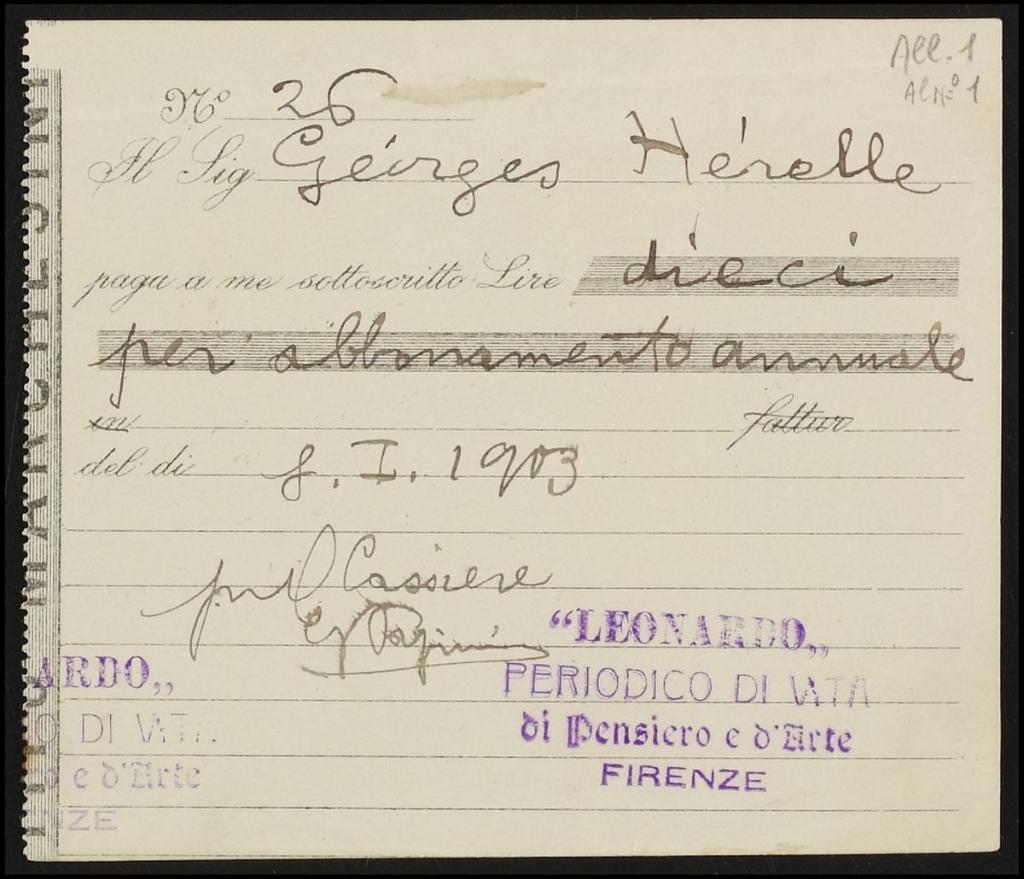 All. 1
Al N.º 1
Nº 26
Il Sig Géorges Hérelle
paga a me sottoscritto Lire dieci
per abbonamento annuale
in fattur
del dì 8. I. 1903
p il Cassiere
G Papini
“LEONARDO„
PERIODICO DI VITA
di Pensiero e d'Arte
FIRENZE
ARDO„
O DI VITA
o e d'Arte
NZE